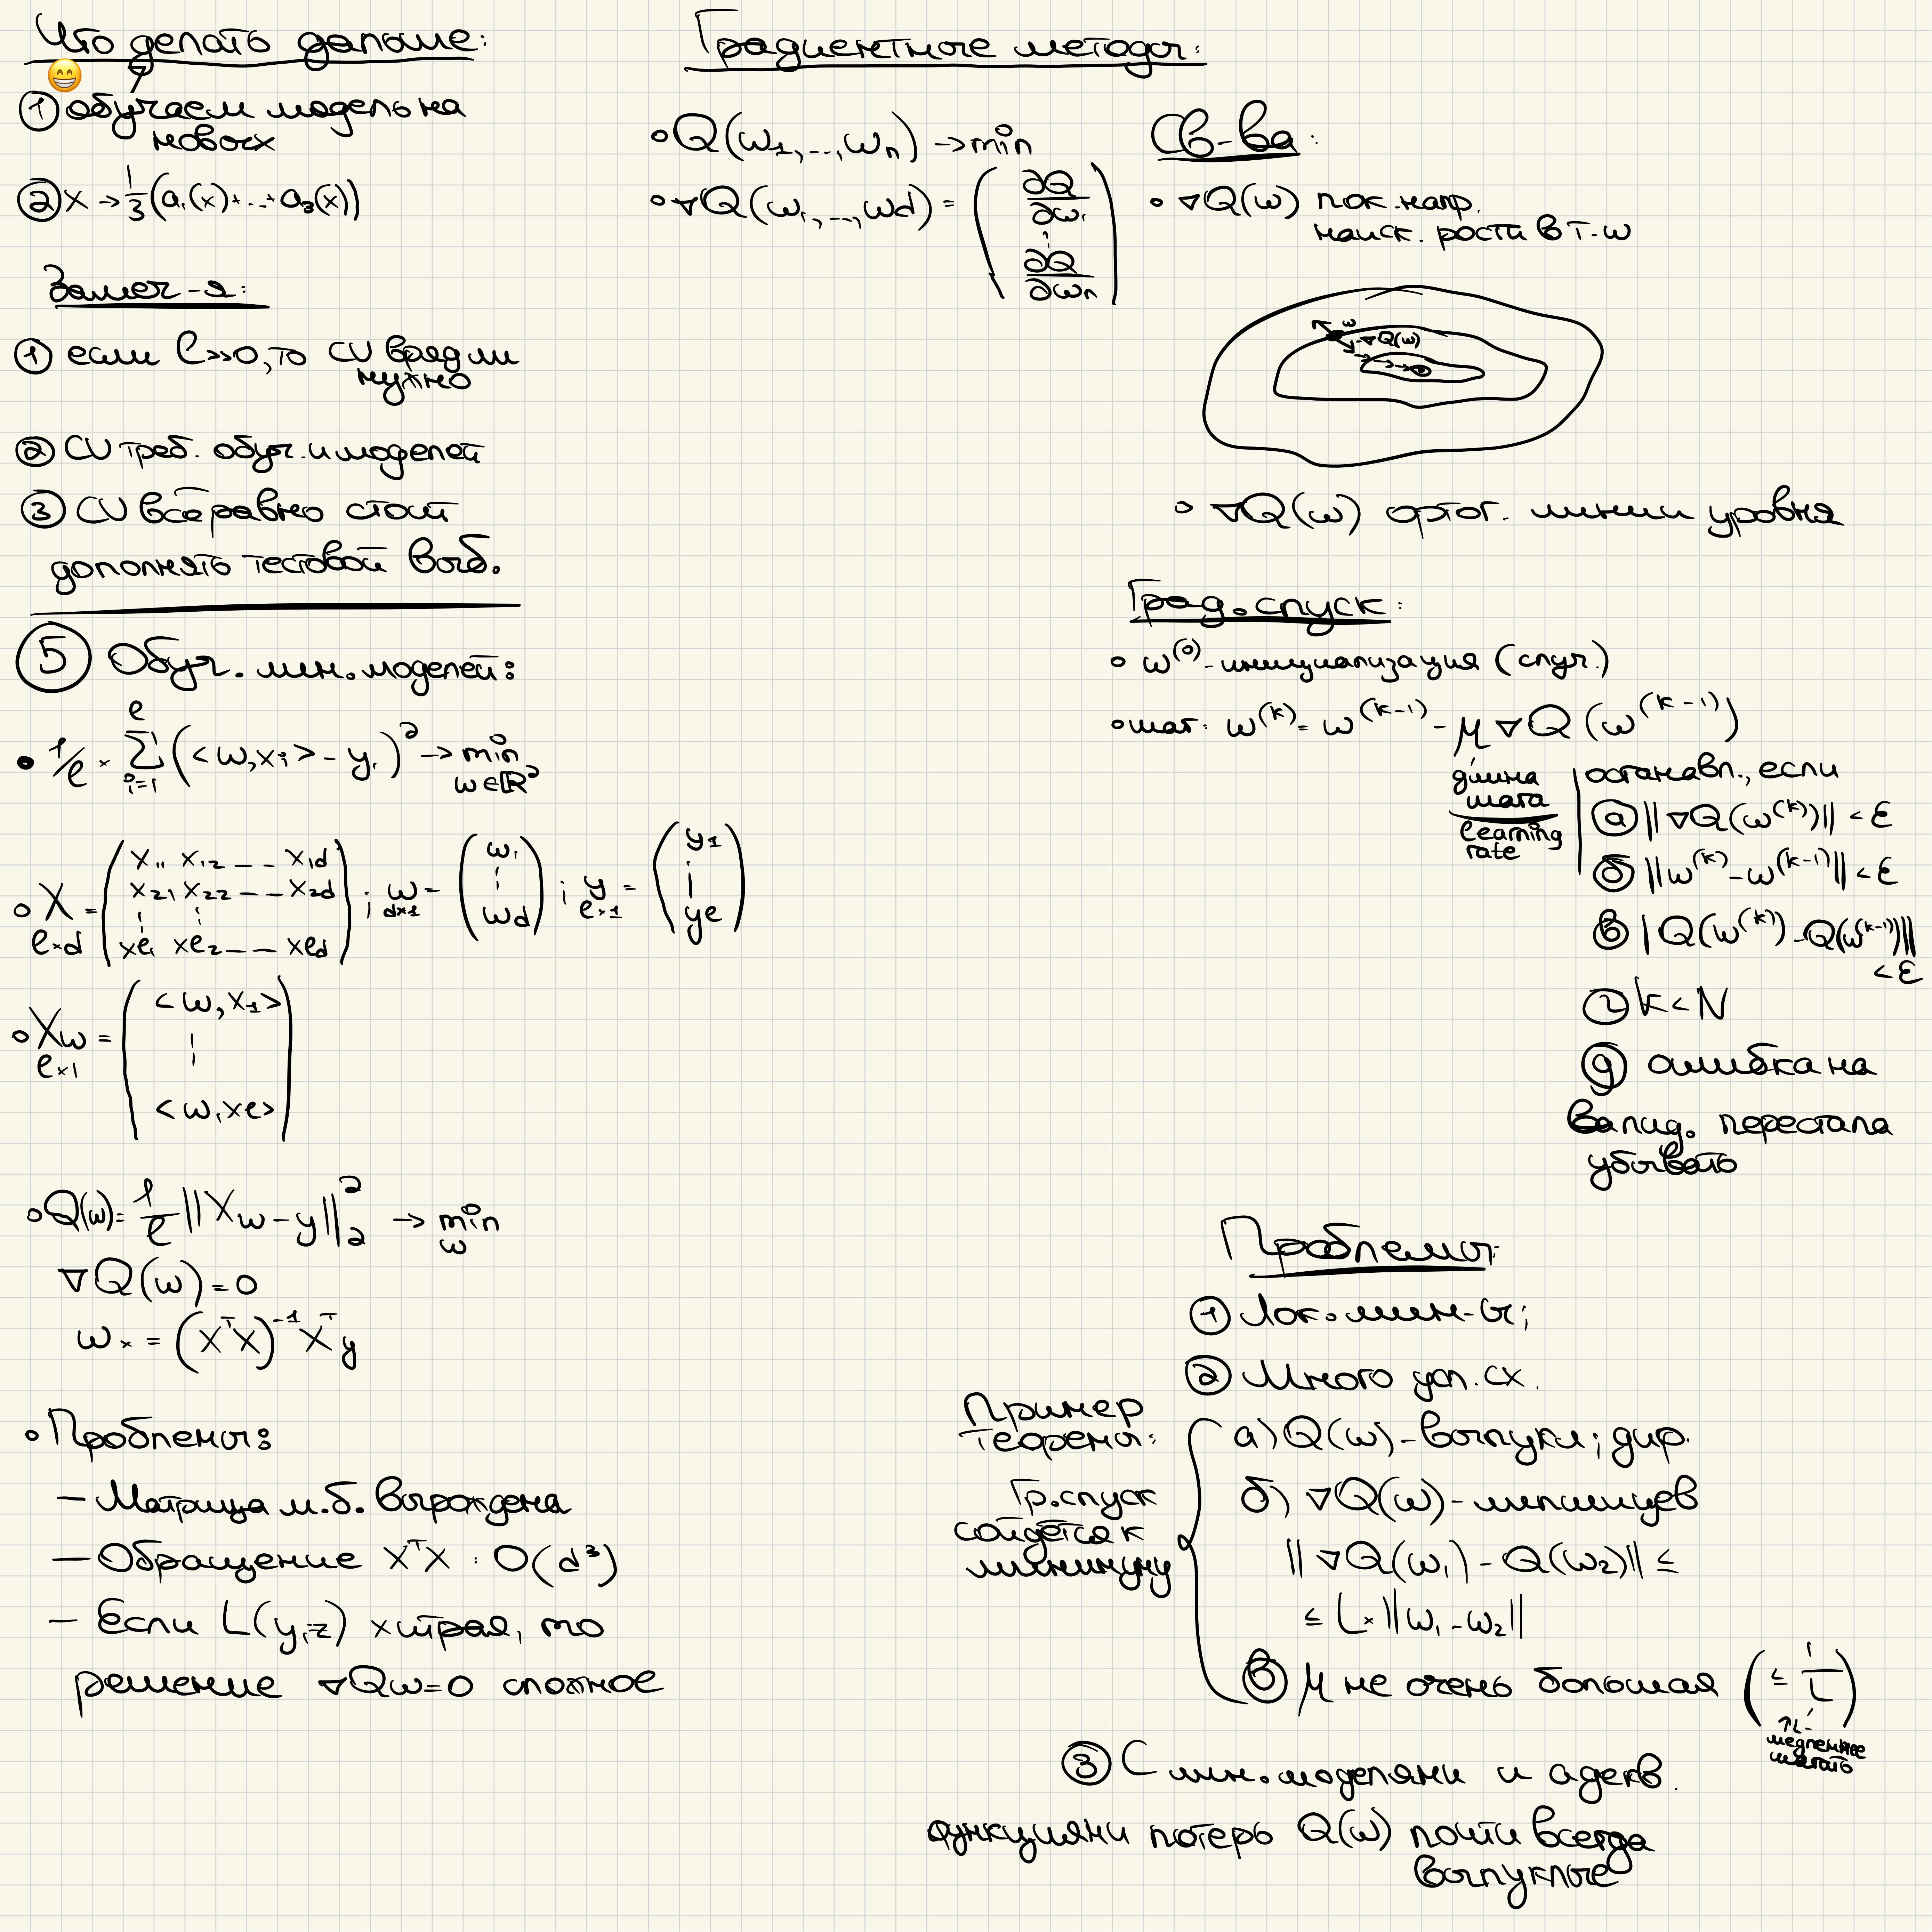 Что делать дальше:
😁
① обучаем модель на
новых
② x → 1/3 (a₁(x)+...+a₃(x))
Замеч-я:
① если l>>0, то CV вряд ли
нужно
② CV треб. обуч. n моделей
③ CV всё равно стоит
дополнять тестовой выб.
⑤ Обуч. лин. моделей:
• 1/l × Σ_{i=1}^{l} (<w,xᵢ> - yᵢ)² → min
w∈ℝ^2
∘ X = (x₁₁ x₁₂ _ _ x₁d
x₂₁ x₂₂ _ _ x₂d
⋮ ⋮
xl₁ xl₂ _ _ xld) ; w = (w₁ ⋮ wd) ; y = (y₁ ⋮ yl)
l×d d×1 l×1
∘ Xw = (<w,x₁>
⋮
<w,xl>)
l×1
∘ Q(w) = 1/l ||Xw - y||₂² → min
w
∇Q(w) = 0
w* = (XᵀX)⁻¹Xᵀy
∘ Проблемы:
– Матрица м.б. вырождена
– Обращение XᵀX : O(d³)
– Если L(y,z) хитрая, то
решение ∇Qw=0 сложное
Градиентные методы:
∘ Q(w₁,...,wₙ) → min
∘ ∇Q(w₁,...,wd) = (∂Q/∂w₁ ⋮ ∂Q/∂wₙ)
Св-ва:
∘ ∇Q(w) пок. напр.
наиск. роста в т. w
w
-∇Q(w)
∘ ∇Q(w) ортог. линии уровня
Град. спуск:
∘ w⁽⁰⁾ - инициализация (случ.)
∘ шаг: w⁽ᵏ⁾ = w⁽ᵏ⁻¹⁾ - μ∇Q(w⁽ᵏ⁻¹⁾)
длина
шага
learning
rate
останавл., если
ⓐ ||∇Q(w⁽ᵏ⁾)|| < ε
б ||w⁽ᵏ⁾ - w⁽ᵏ⁻¹⁾|| < ε
в |Q(w⁽ᵏ⁾) - Q(w⁽ᵏ⁻¹⁾)||
< ε
г k < N
д ошибка на
валид. перестала
убывать
Проблемы:
① Лок. мин-ы;
② Много усл. сх.
Пример
теоремы:
Гр. спуск
сойдётся к
минимуму
а) Q(w) - выпукл; диф.
б) ∇Q(w) - липшицев
||∇Q(w₁) - Q(w₂)|| ≤
≤ L × ||w₁ - w₂||
в μ не очень большая (≤ 1/L)
↑L -
медленнее
шагать
③ С лин. моделями и адекв.
функциями потерь Q(w) почти всегда
выпуклые